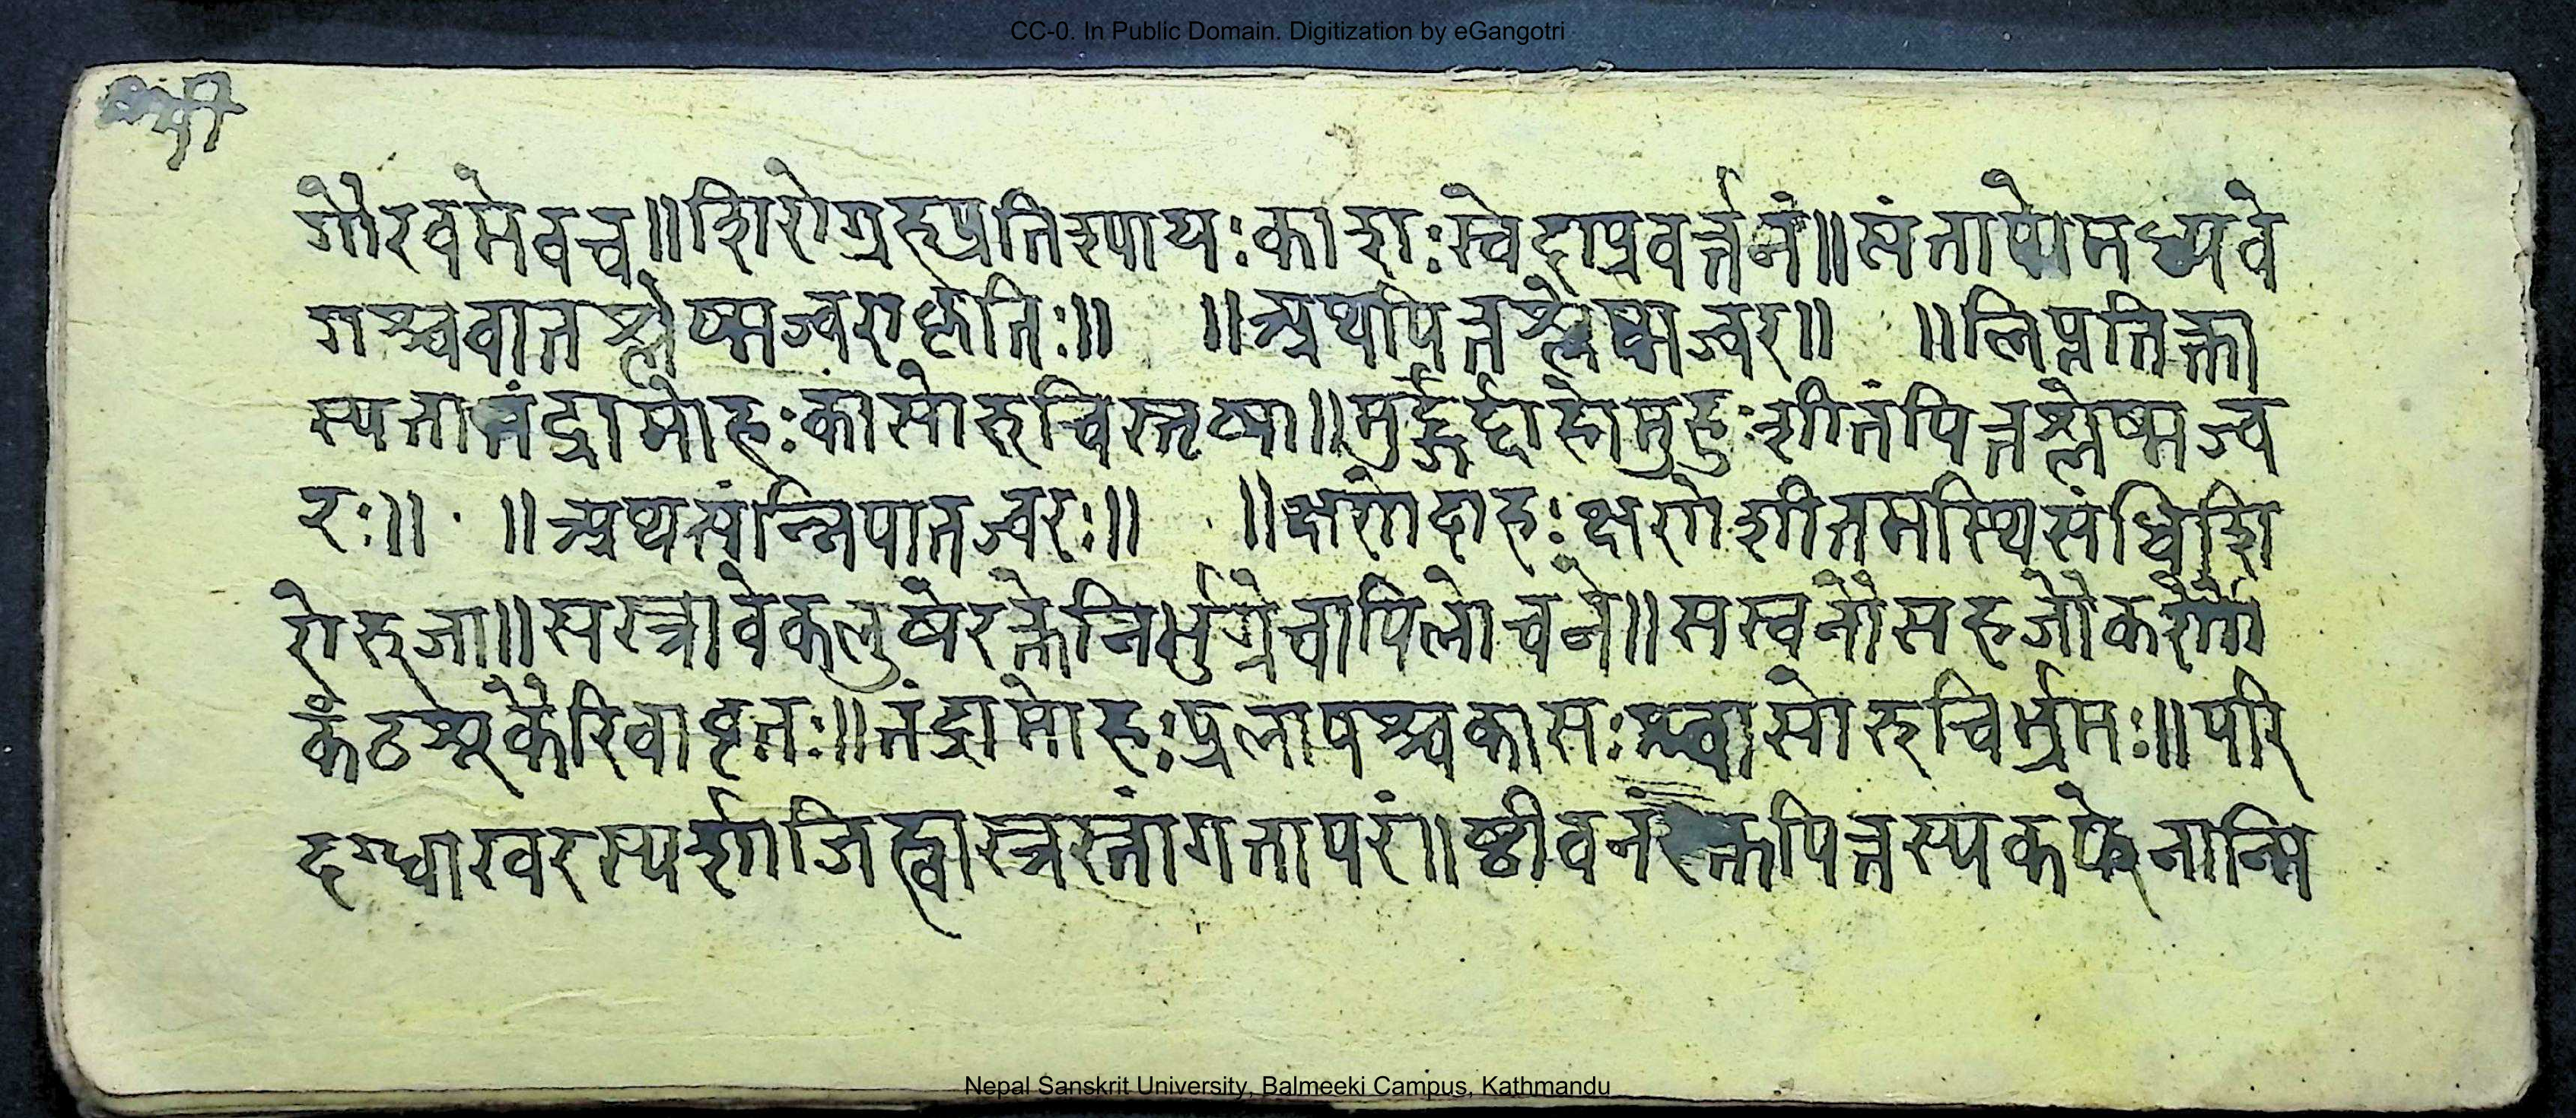 CC-0. In Public Domain. Digitization by eGangotri
गौरवमेवच॥शिरोग्रहप्रतिश्यायःकाशःस्वेदाप्रवर्त्तनं॥संतापोमध्यवे
गश्चवातश्लेष्मज्वराकृतिः॥ ॥अथपित्तश्लेष्मज्वर॥ ॥लिप्ततिक्ता
स्यतातंद्रामोहःकासोरुचिस्तृष्णा॥मुर्हुर्द्दाहोमुहुःशीतंपित्तश्लेष्मज्व
रः॥ ॥अथसंन्निपातज्वरः॥ ॥क्षणेदाहःक्षणेशीतमस्थिसंधिशि
रोरुजा॥सस्त्रावेकलुषेरक्तेनिर्भुग्नेचापिलोचने॥सस्वनौसहजौकर्णौ
कंठश्शूकैरिवावृतः॥तंद्रामोहःप्रलापश्चकासःश्वासोरुचिर्भ्रमः॥परि
दग्धाखरस्पर्शाजिह्वास्त्रस्तांगतापरं॥ष्ठीवनंरक्तपित्तस्यकफेनान्मि
Nepal Sanskrit University, Balmeeki Campus, Kathmandu